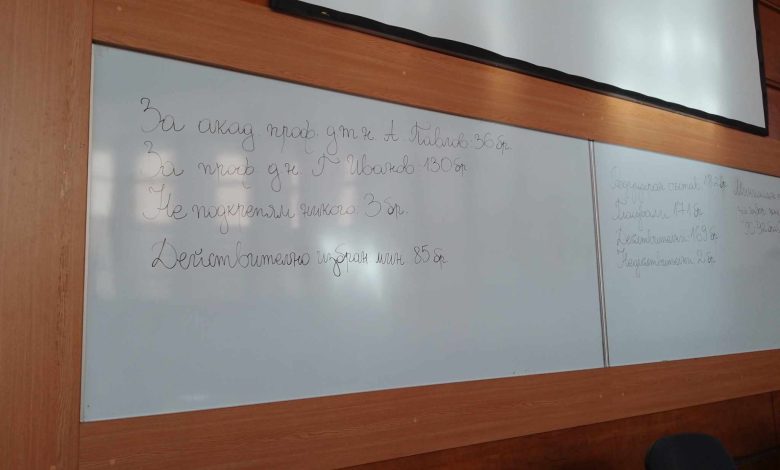 За акад. проф. дтн. А. Павлов: 36 бр.
За проф. дн. Г. Иванов: 130 бр.
Не подкрепям никого: 3 бр.
Действително избран мин. 85 бр.
състав: 182 бр.
Гласували: 171 бр.
Действителни: 169 бр.
Недействителни: 2 бр.